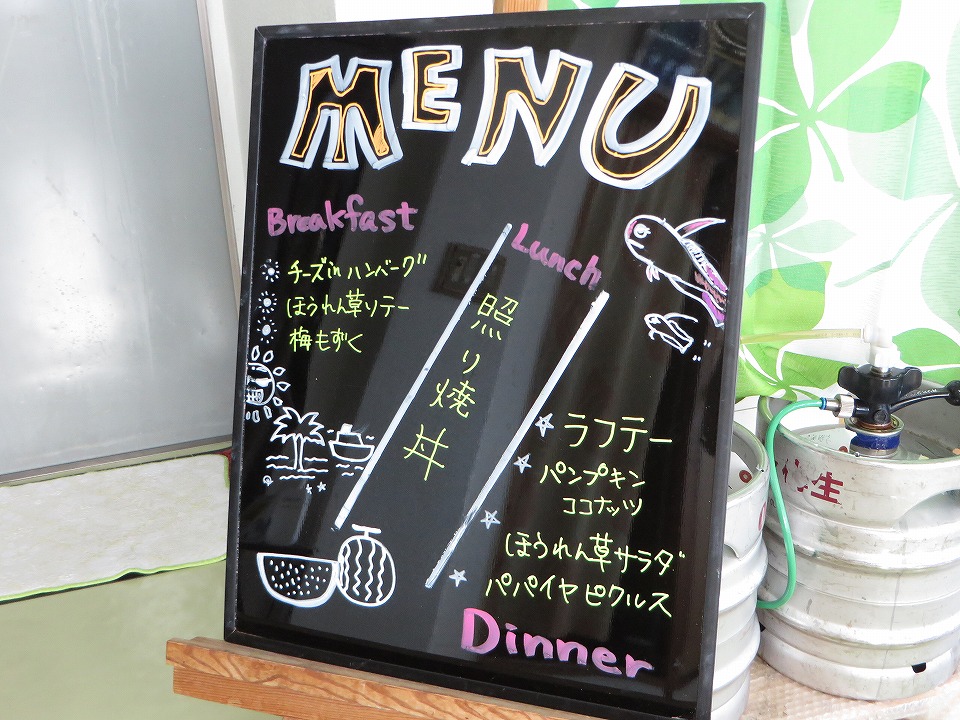 MENU
Breakfast
チーズinハンバーグ
ほうれん草ソテー
梅もずく
Lunch
照り焼丼
ラフテー
パンプキン
ココナッツ
ほうれん草サラダ
パパイヤピクルス
Dinner
生